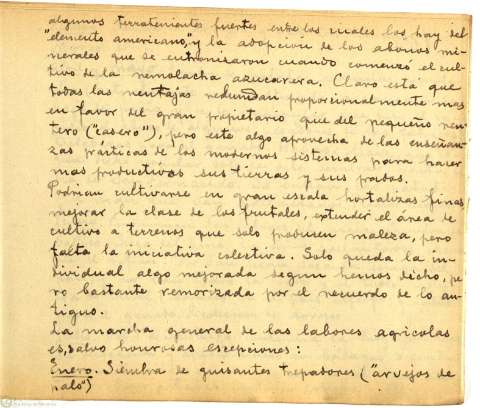 algunos terratenientes fuertes entre los cuales los hay del
"elemento americano," y la adopcion de los abonos mi-
nerales que se entronizaron cuando comenzó el cul-
tivo de la remolacha azucarera. Claro está que
todas las ventajas redundan proporcionalmente mas
en favor del gran propietario que del pequeño ren-
tero ("casero"), pero este algo aprovecha de las enseñan-
zas prácticas de los modernos sistemas para hacer
mas productivos sus tierras y sus prados.
Podrian cultivarse en gran escala hortalizas finas,
mejorar la clase de los frutales, extender el área de
cultivo a terrenos que solo producen maleza, pero
falta la iniciativa colectiva. Solo queda la in-
dividual algo mejorada segun hemos dicho, pe-
ro bastante remorizada por el recuerdo de lo an-
tiguo.
La marcha general de las labores agricolas
es, salvo honrosas escepciones:
Enero. Siembra de guisantes trepadores ("arvejos de
palo")